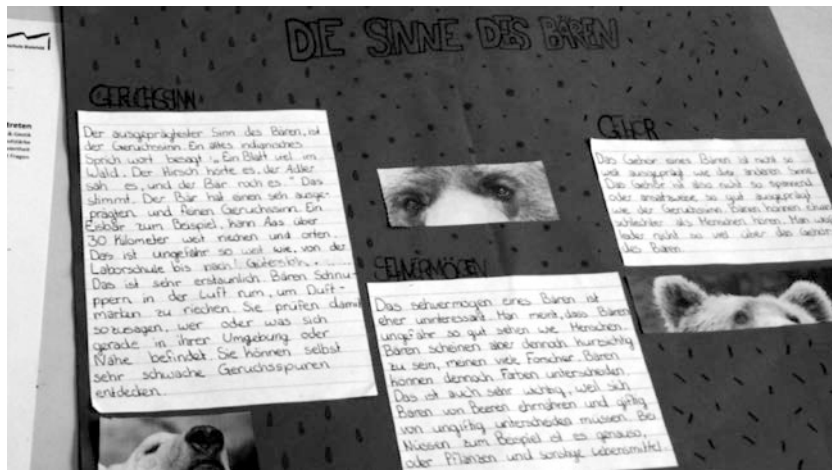 DIE SINNE DES BÄREN
GERUCHSSINN
Der ausgeprägtester Sinn des Bären, ist
der Geruchssinn. Ein altes indianisches
Sprich wort besagt: „Ein Blatt viel im
Wald. Der Hirsch hörte es, der Adler
sah es, und der Bär roch es." Das
stimmt. Der Bär hat einen seh ausge-
prägten und feinen Geruchssinn. Ein
Eisbär zum Beispiel, kann Aas über
30 Kilometer weit riechen und orten.
Das ist ungefähr so weit wie, von der
Laborschule bis nach Gütersloh.
Das ist sehr erstaunlich. Bären Schnu-
ppern in der Luft rum, um Duft-
marken zu riechen. Sie prüfen damit
sozusagen, wer oder was sich
gerade in ihrer Umgebung oder
Nähe befindet. Sie können selbst
sehr schwache Geruchsspuren
entdecken.
SEHVERMÖGEN
Das sehvermögen eines Bären ist
eher uninteressant. Man meint, dass Bären
ungefähr so gut sehen wie Menschen.
Bären scheinen aber dennoch kurzsichtig
zu sein, meinen viele Forscher. Bären
können dennoch Farben unterscheiden.
Das ist auch sehr wichtig, weil sich
Bären von Beeren ehrnähren und giftig
von ungiftig unterscheiden müssen. Bei
Nüssen zum Beispiel ist es genauso,
oder Pflanzen und sonstige Lebensmittel.
GEHÖR
Das Gehör eines Bären ist nicht so
weit ausgeprägt wie die anderen Sinne.
Das Gehör ist also nicht so spannend
oder so gut ausgeprägt
wie der Geruchssinn. Bären können etwas
schlechter als Menschen hören. Man weiß
leider nicht so viel über das Gehör
des Bären.
treten